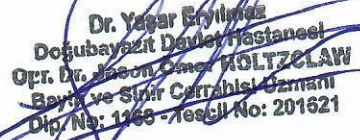 Dr. Yaşar Eryılmaz
Doğubayazıt Devlet Hastanesi
Opr. Dr. Jason Ömer HOLTZCLAW
Beyin ve Sinir Cerrahisi Uzmanı
Dip. No: 1168 - Tescil No: 201621